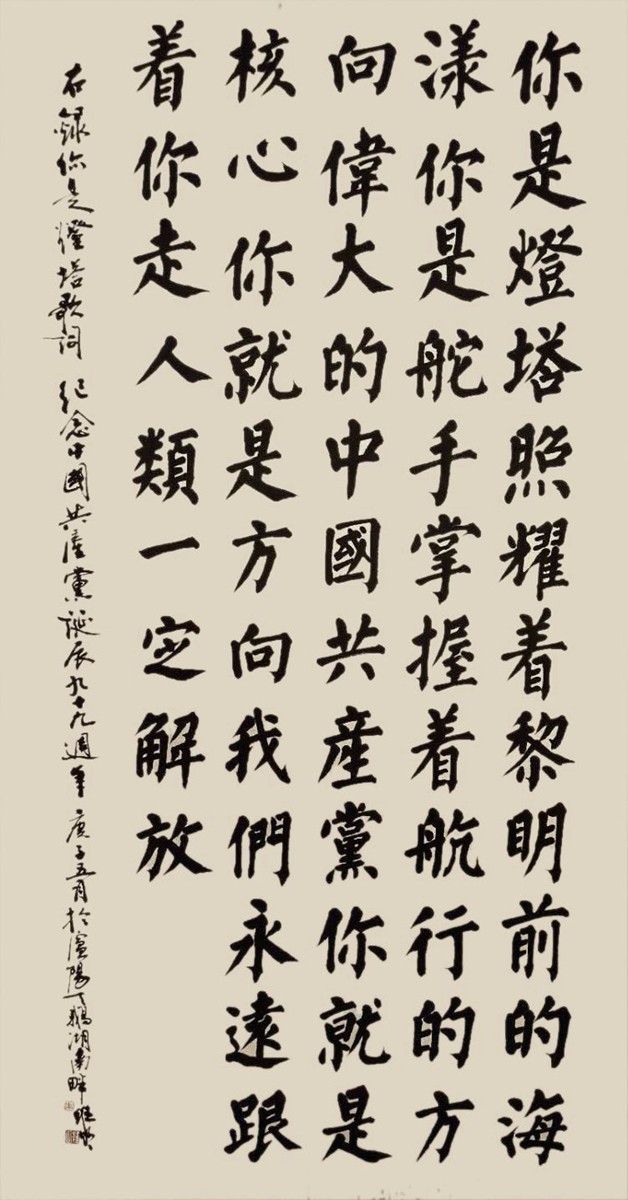 你是燈塔照耀着黎明前的海
漾你是舵手掌握着航行的方
向偉大的中國共產黨你就是
核心你就是方向我們永遠跟
着你走人類一定解放
右錄你是燈塔歌詞 紀念中國共產黨誕辰九十九週年 庚子五月於濮陽天鵝湖南畔